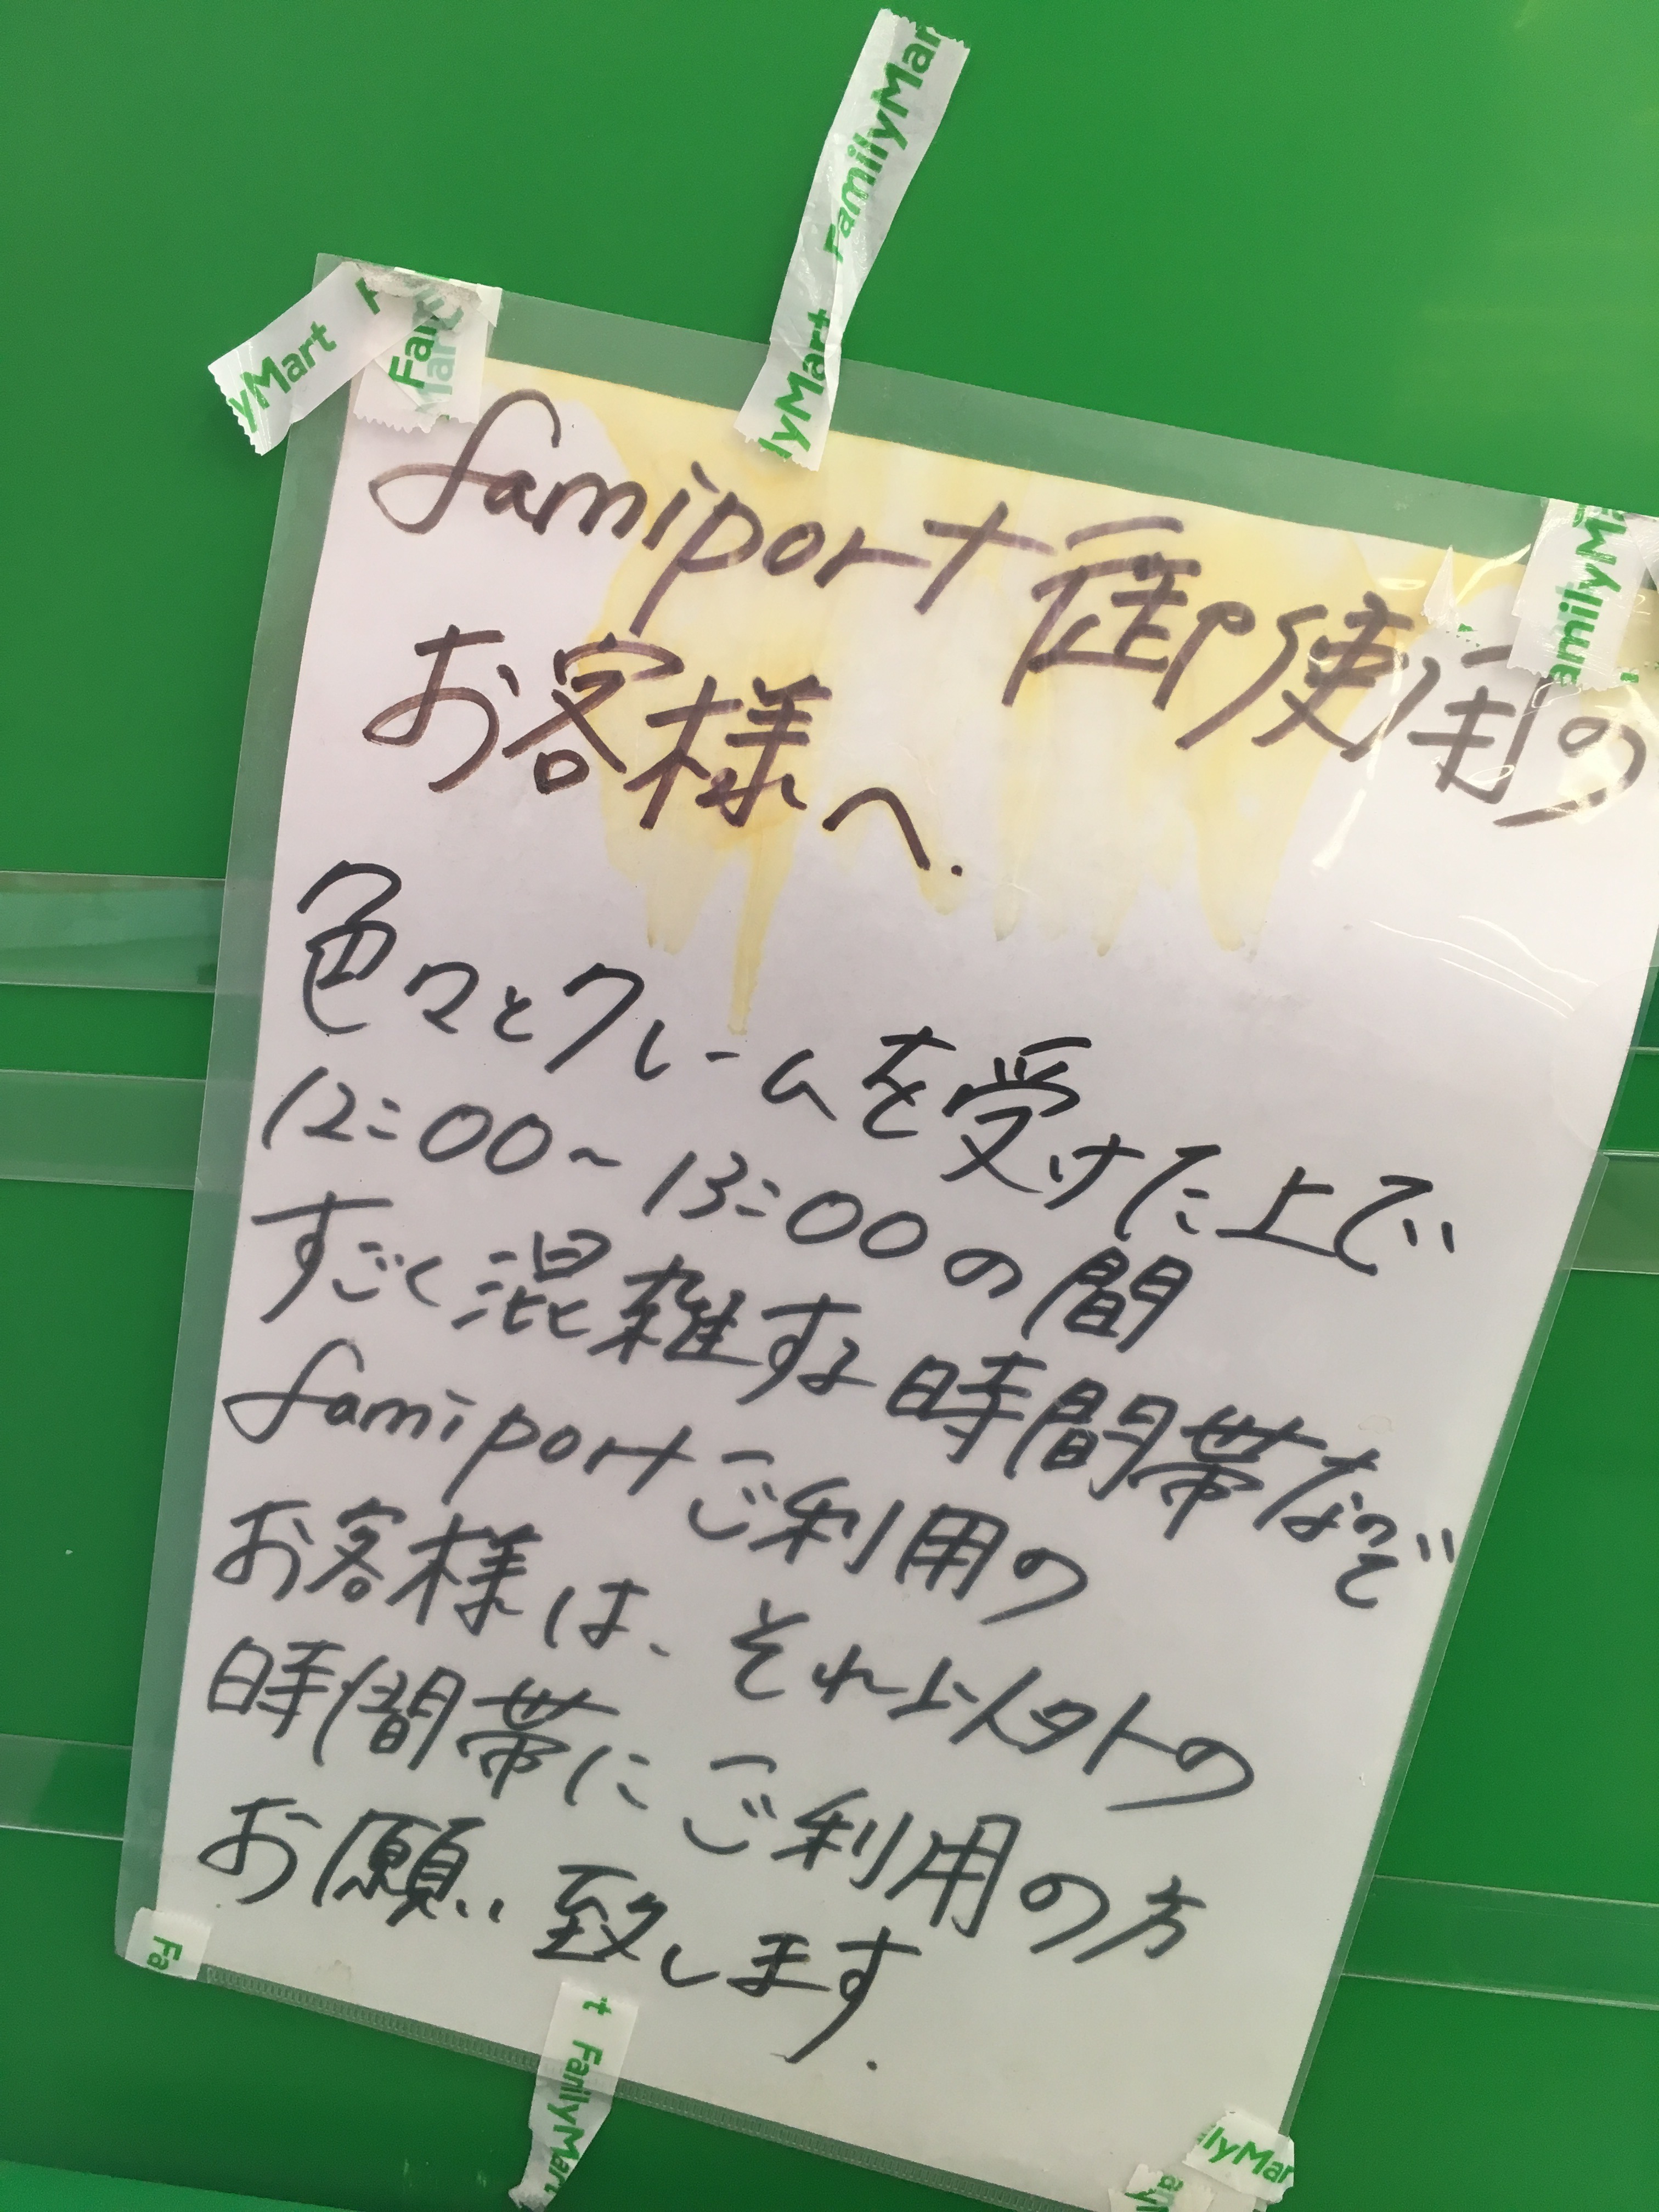 famiport御使用の
お客様へ.
色々とクレームを受けた上で
12:00~13:00の間
すごく混雑する時間帯なので
famiportご利用の
お客様は、それ以外の
時間帯にご利用の方
お願い致します.
FamilyMar
lyMart
yMart
Fa
amilyMa
Fa
t FamilyMart
ilyMar